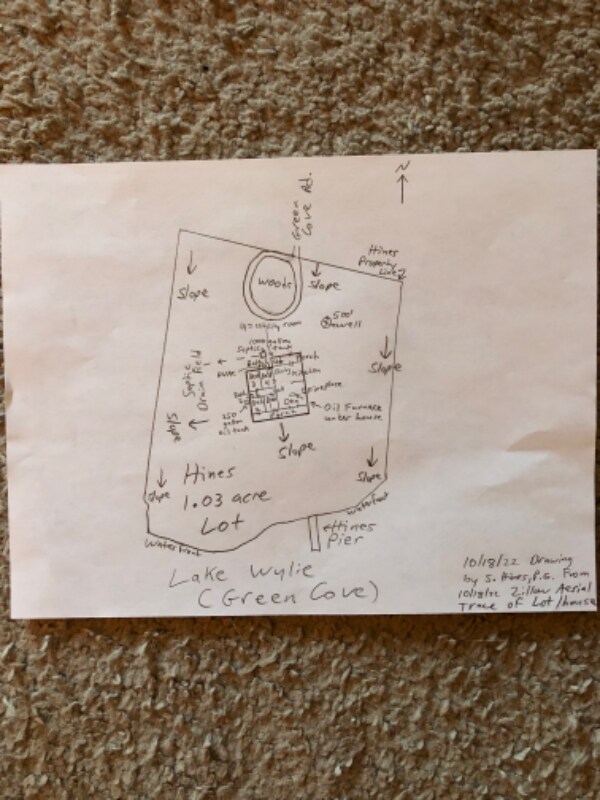 N
Green
Cove Rd.
Hines
Property
Line
Woods
Slope
Slope
500'
well
utility room
1000 gallon
Septic tank
Porch
Kitchen
Slope
Septic
Drain Field
Fireplace
Den
Oil Furnace
under house
250
gallon
oil tank
Slope
Slope
Hines
1.03 acre
Lot
Slope
Slope
Waterfront
Waterfront
Hines
Pier
Lake Wylie
(Green Cove)
10/18/22 Drawing
by S. Hines, P.G. From
10/18/22 Zillow Aerial
Trace of Lot/house